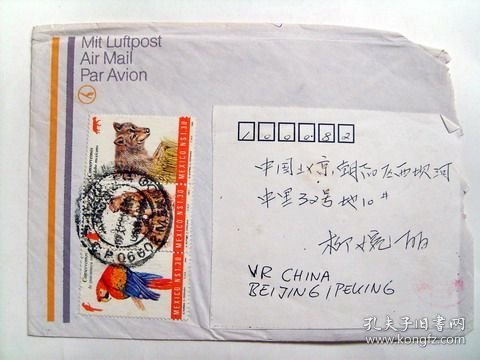 Mit Luftpost
Air Mail
Par Avion
MEXICO N$1.30
MEXICO N$1.30
MEXICO N$1.30
100082
中国北京朝阳区西坝河
中里32号地10#
柳婉丽
VR CHINA
BEIJING/PEKING
孔夫子旧书网
www.kongfz.com